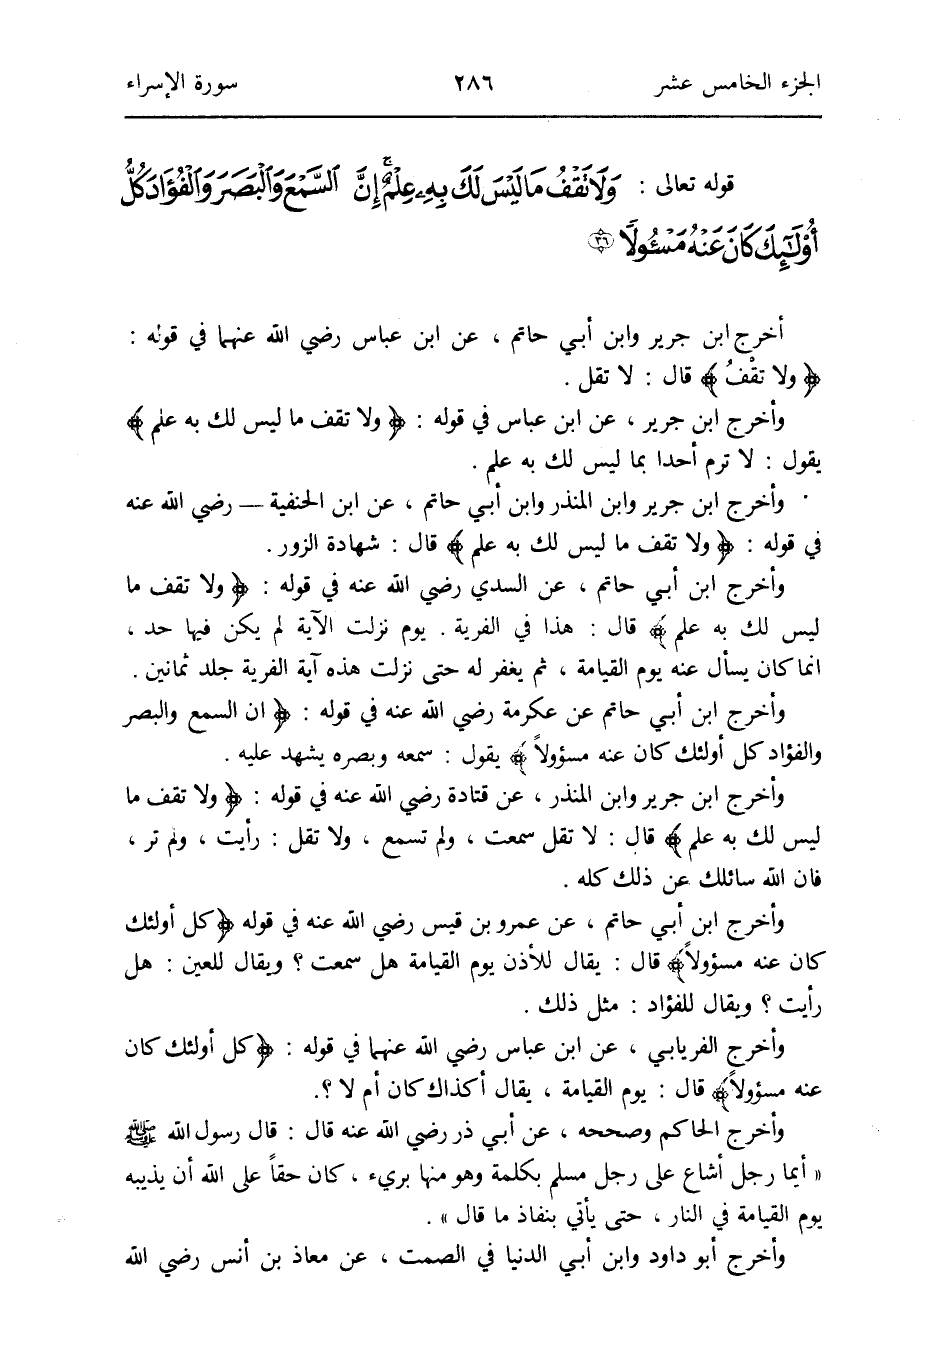 الجزء الخامس عشر ٢٨٦ سورة الإسراء
قوله تعالى : وَلَا تَقْفُ مَا لَيْسَ لَكَ بِهِ عِلْمٌ إِنَّ السَّمْعَ وَالْبَصَرَ وَالْفُؤَادَ كُلُّ
أُوْلَٰٓئِكَ كَانَ عَنْهُ مَسْـُٔولًا ٣٦
أخرج ابن جرير وابن أبي حاتم ، عن ابن عباس رضي الله عنهما في قوله :
﴿ ولا تقْفُ ﴾ قال : لا تقل .
وأخرج ابن جرير ، عن ابن عباس في قوله : ﴿ ولا تقف ما ليس لك به علم ﴾
يقول : لا ترم أحدا بما ليس لك به علم .
وأخرج ابن جرير وابن المنذر وابن أبي حاتم ، عن ابن الحنفية — رضي الله عنه
في قوله : ﴿ ولا تقف ما ليس لك به علم ﴾ قال : شهادة الزور .
وأخرج ابن أبي حاتم ، عن السدي رضي الله عنه في قوله : ﴿ ولا تقف ما
ليس لك به علم ﴾ قال : هذا في الفرية . يوم نزلت الآية لم يكن فيها حد ،
انما كان يسأل عنه يوم القيامة ، ثم يغفر له حتى نزلت هذه آية الفرية جلد ثمانين .
وأخرج ابن أبي حاتم عن عكرمة رضي الله عنه في قوله : ﴿ ان السمع والبصر
والفؤاد كل أولئك كان عنه مسؤولاً ﴾ يقول : سمعه وبصره يشهد عليه .
وأخرج ابن جرير وابن المنذر ، عن قتادة رضي الله عنه في قوله : ﴿ ولا تقف ما
ليس لك به علم ﴾ قال : لا تقل سمعت ، ولم تسمع ، ولا تقل : رأيت ، ولم تر ،
فان الله سائلك عن ذلك كله .
وأخرج ابن أبي حاتم ، عن عمرو بن قيس رضي الله عنه في قوله ﴿ كل أولئك
كان عنه مسؤولاً ﴾ قال : يقال للأذن يوم القيامة هل سمعت ؟ ويقال للعين : هل
رأيت ؟ ويقال للفؤاد : مثل ذلك .
وأخرج الفريابي ، عن ابن عباس رضي الله عنهما في قوله : ﴿ كل أولئك كان
عنه مسؤولاً ﴾ قال : يوم القيامة ، يقال أكذاك كان أم لا ؟.
وأخرج الحاكم وصححه ، عن أبي ذر رضي الله عنه قال : قال رسول الله ﷺ
« أيما رجل أشاع على رجل مسلم بكلمة وهو منها بريء ، كان حقاً على الله أن يذيبه
يوم القيامة في النار ، حتى يأتي بنفاذ ما قال » .
وأخرج أبو داود وابن أبي الدنيا في الصمت ، عن معاذ بن أنس رضي الله